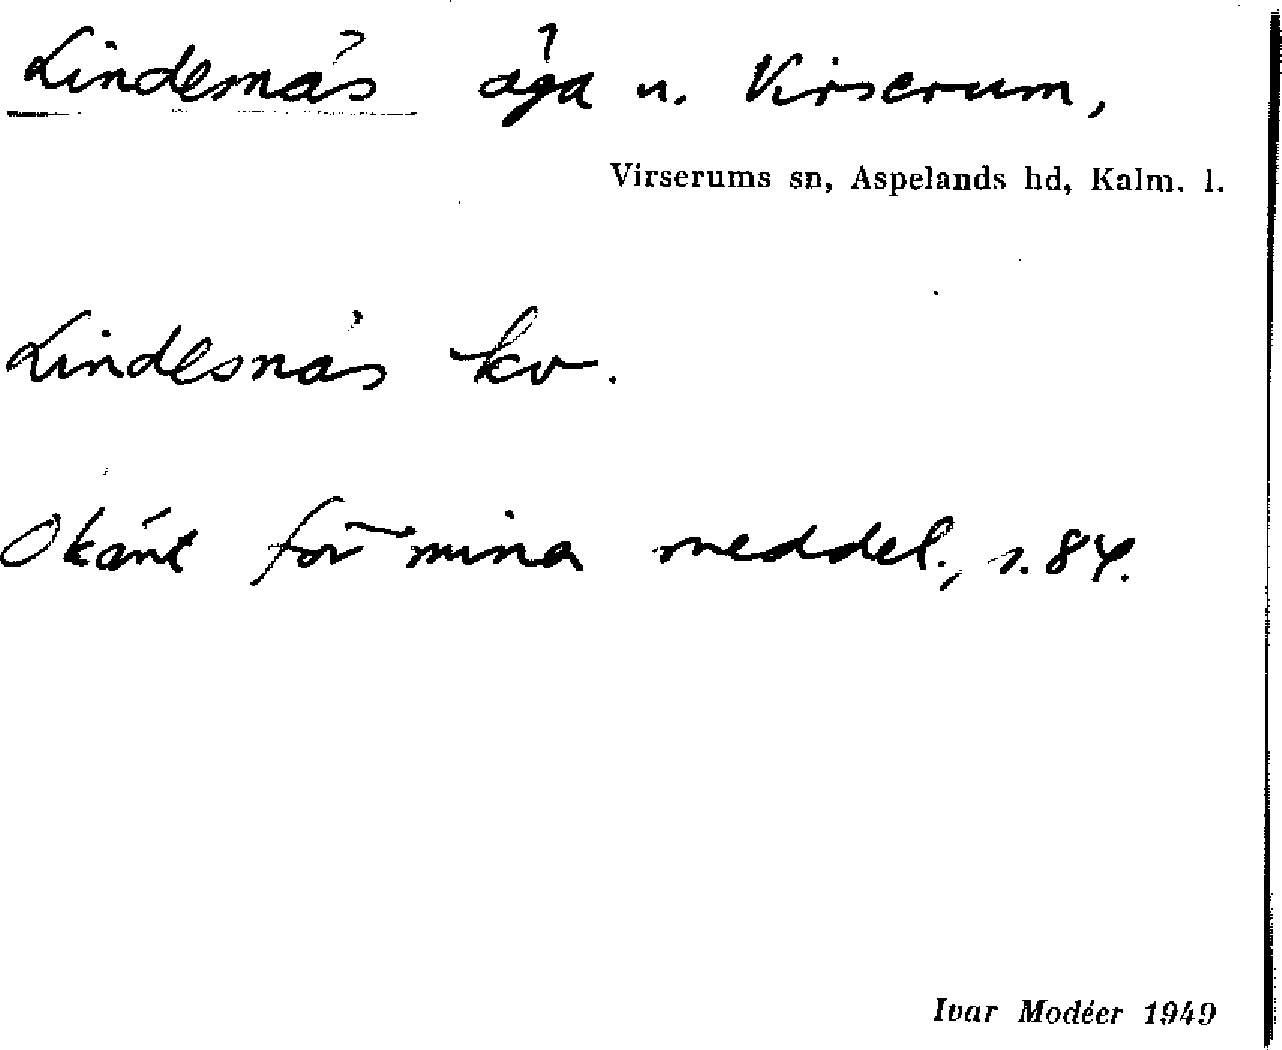 Lindesnäs äga u. Virserum,
Virserums sn, Aspelands hd, Kalm. l.
Lindesnäs kv.
Okänt för mina meddel., s. 84.
Ivar Modéer 1949